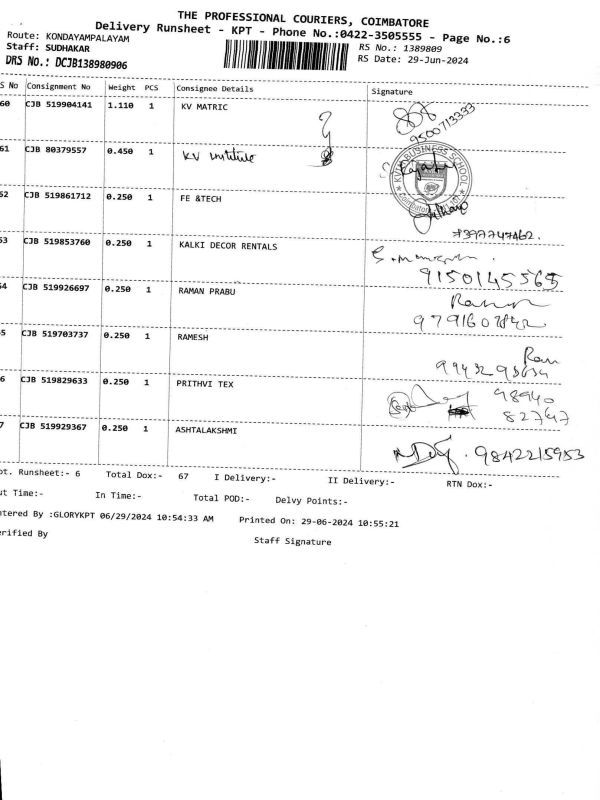 THE PROFESSIONAL COURIERS, COIMBATORE
Delivery Runsheet - KPT - Phone No.:0422-3505555 - Page No.:6
Route: KONDAYAMPALAYAM
Staff: SUDHAKAR
DRS No.: DCJB138980906
RS No.: 1389809
RS Date: 29-Jun-2024
S No Consignment No Weight PCS Consignee Details Signature
60 CJB 519904141 1.110 1 KV MATRIC 9500713333
61 CJB 80379557 0.450 1 KV institute
BUSINESS SCHOOL
52 CJB 519861712 0.250 1 FE &TECH 7397747462.
53 CJB 519853760 0.250 1 KALKI DECOR RENTALS 9150145565
54 CJB 519926697 0.250 1 RAMAN PRABU 9791607842
5 CJB 519703737 0.250 1 RAMESH Ram
6 CJB 519829633 0.250 1 PRITHVI TEX 98940
82747
7 CJB 519929367 0.250 1 ASHTALAKSHMI 9842215953
ot. Runsheet:- 6 Total Dox:- 67 I Delivery:- II Delivery:- RTN Dox:-
ut Time:- In Time:- Total POD:- Delvy Points:-
ntered By :GLORYKPT 06/29/2024 10:54:33 AM Printed On: 29-06-2024 10:55:21
erified By Staff Signature